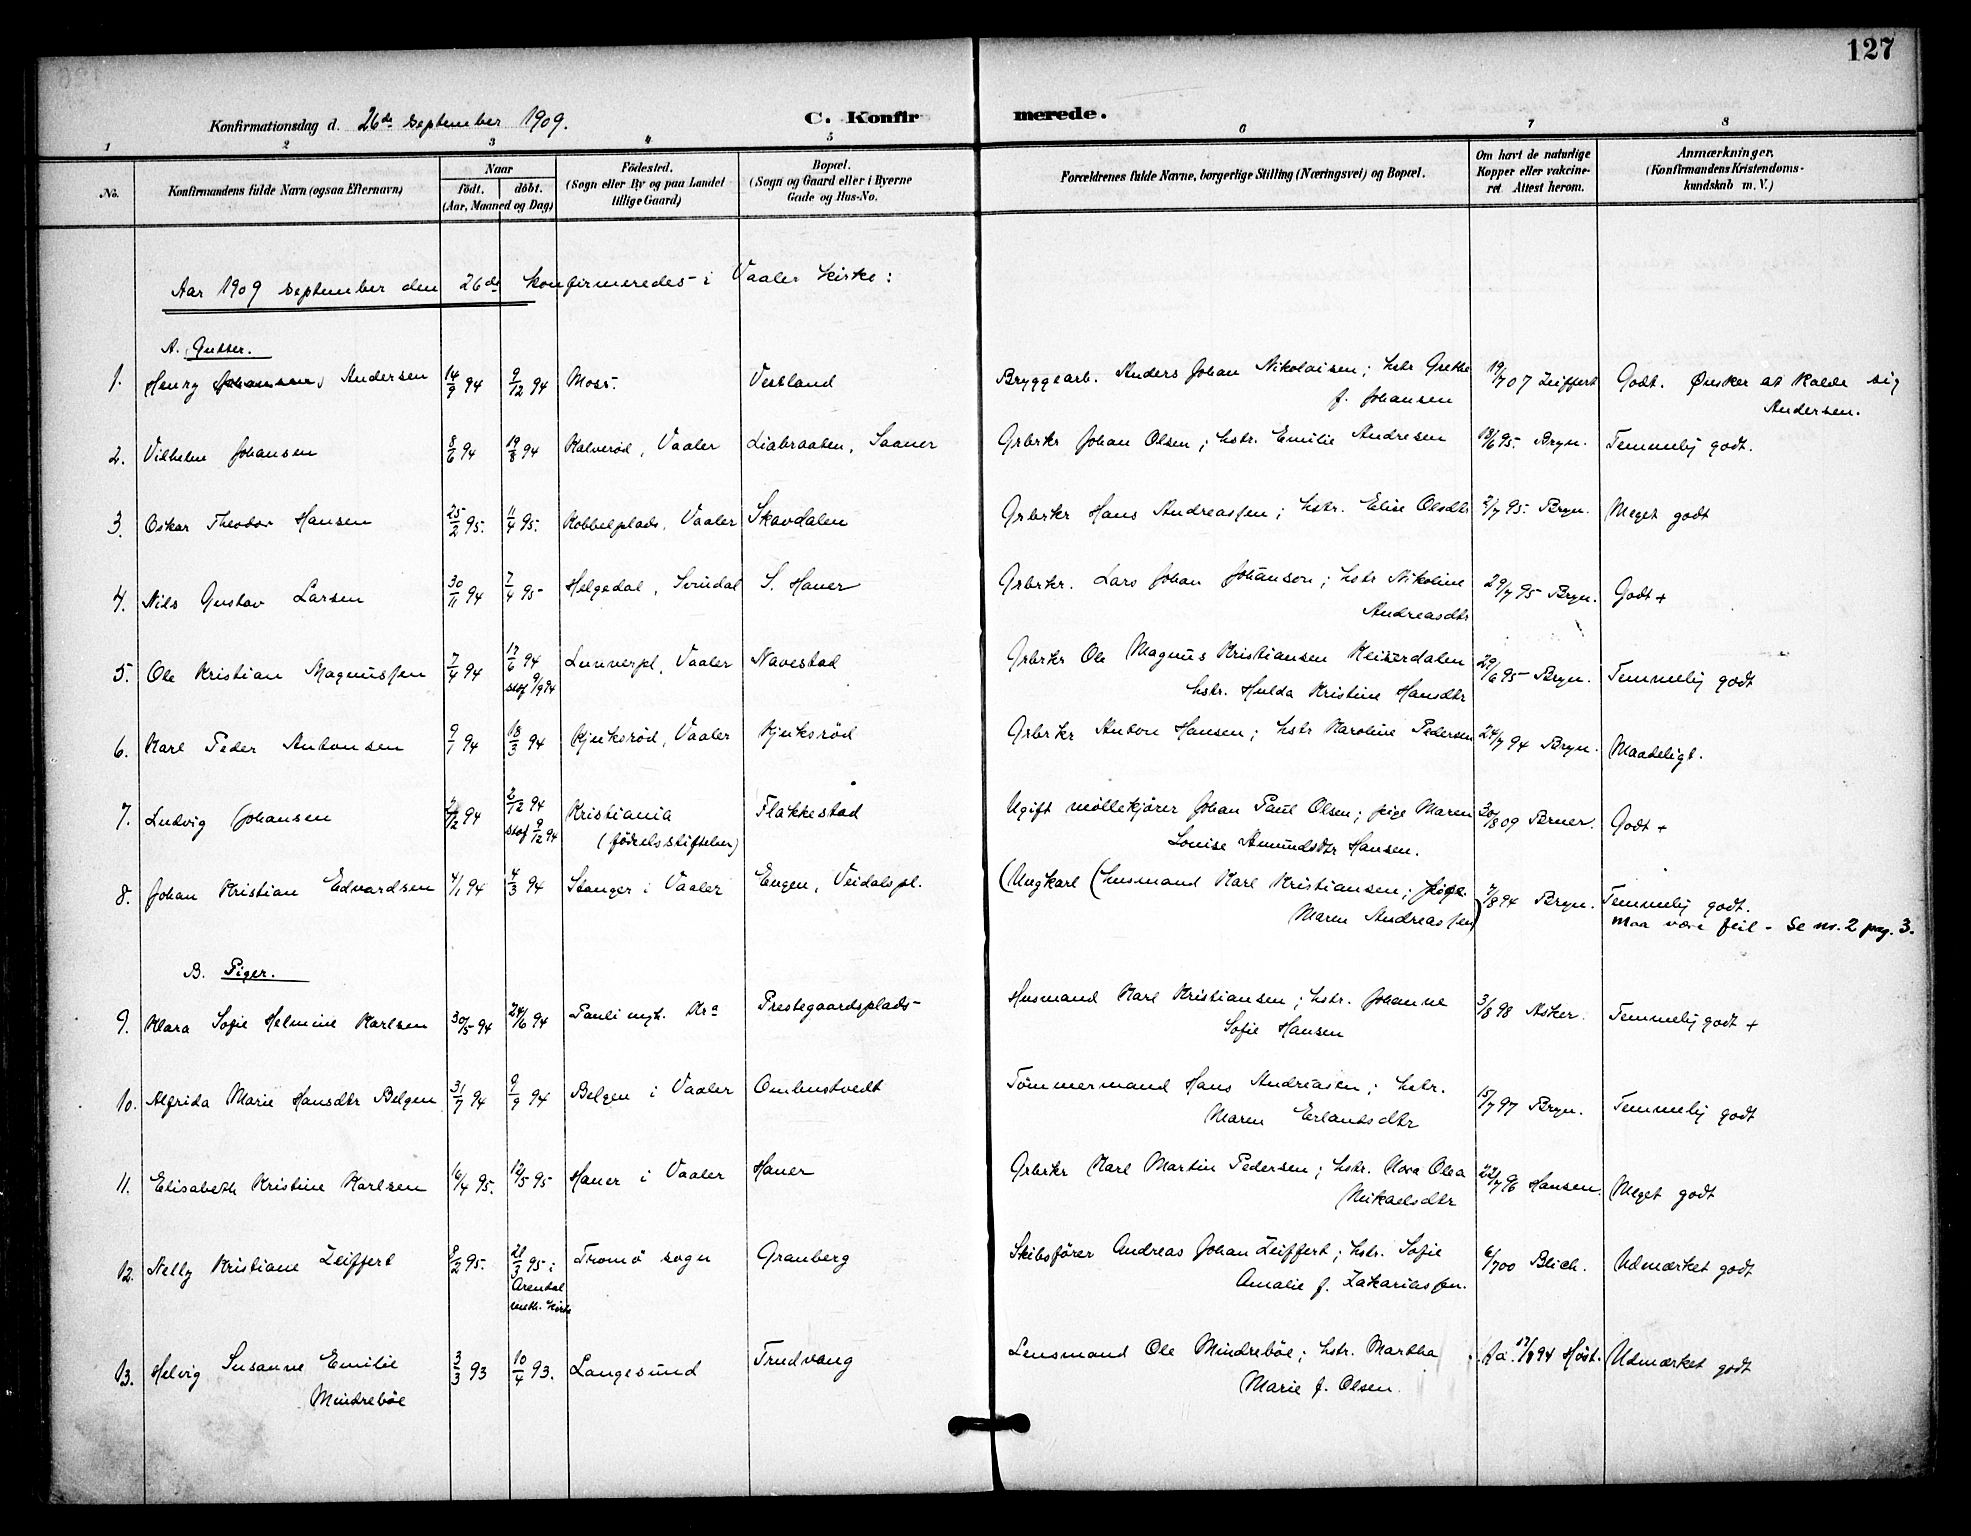 127
Konfirmationsdag d. 26de September 1909. C. Konfirmerede.
1 2 3 4 5 6 7 8
No. Konfirmandens fulde Navn (ogsaa Efternavn) Naar födt. döbt. (Aar, Maaned og Dag) Födested. (Sogn eller By og paa Landet tillige Gaard) Bopæl. (Sogn og Gaard eller i Byerne Gade og Hus-No. Forældrenes fulde Navne, borgerlige Stilling (Næringsvei) og Bopæl. Om havt de naturlige Kopper eller vakcineret Attest herom. Anmærkninger, (Konfirmandens Kristendomskundskab m. V.)
Aar 1909 September den 26de konfirmeredes i Vaaler kirke:
A. Gutter.
1. Henry Johansen, Andersen 14/9 94 9/12 94 Moss. Vestland Bryggearb. Anders Johan Nikolaisen; hstr Grethe 19/7 07 Zeiffert Godt. Ønsker at kalde sig
f. Johansen Andersen.
2. Vilhelm Johansen 8/6 94 19/8 94 Kalverød, Vaaler Liabraaten, Saaner Grbrkr Johan Olsen; hstr. Emilie Andresen 18/6 95. Bryn. Temmelig godt.
3. Oskar Theodor Hansen 25/2 95. 11/4 95. Kobbelplads, Vaaler Skavdalen Grbrkr Hans Andreassen; hstr. Elise Olsdtr 2/7 95. Bryn. Meget godt
4. Nils Gustav Larsen 30/11 94 7/4 95 Helgedal, Svindal S. Hauer Grbrkr. Lars Johan Johansen; hstr Nikoline 29/7 95 Bryn. Godt +
Andreasdtr
5. Ole Kristian Magnussen 7/4 94 17/6 94 Lunverpl, Vaaler Navestad Grbrkr Ole Magnus Kristiansen 29/6 95 Bryn. Temmelig godt
stof 9/9 94 hstr. Hulda Kristine Hansdtr
6. Karl Peder Antonsen 9/1 94 18/3 94 Kjuksrød, Vaaler Kjuksrød Grbrkr Anton Hansen; hstr Karoline Pedersen 24/7 94 Bryn. Maadeligt.
7. Ludvig Johansen 94 2/12 94 Kristiania Flakkestad Ugift møllekjører Johan Paul Olsen; pige Maren 30/8 09 Bruer. Godt +
stof 9/12 94 (fødselsstiftelsen) Louise Amundsdtr Hansen.
8. Johan Kristian Edvardsen 4/1 94 4/3 94 Stanger i Vaaler Engen, Veidalspl. (Ungkarl (husmand Karl Kristiansen; pige 7/8 94 Bryn. Temmelig godt.
Maren Andreassen) maa være feil - Se nr. 2 pag. 3.
B. Piger.
9. Klara Sofie Helmine Karlsen 30/5 94 24/6 94 Pauli mgh. Kra Prestegaardsplads- Husmand Karl Kristiansen; hstr. Johanne 3/8 98 Asker. Temmelig godt +
Sofie Hansen
10. Alfrida Marie Hansdtr Belgen 31/7 94 9/9 94 Belgen i Vaaler Ombustvedt Tømmermand Hans Andreasen; hstr. 15/7 97 Bryn. Temmelig godt
Maren Erlandsdtr
11. Elisabeth Kristine Karlsen 16/4 95. 12/5 95 Hauer i Vaaler Hauer Grbrkr Karl Martin Pedersen; hstr. Nora Olea 22/7 96 Hansen. Meget godt
Mikaelsdtr
12. Nelly Kristiane Zeiffert 8/2 95. 21/3 95 i Tromø sogn Granberg Skibsfører Andreas Johan Zeiffert; hstr. Sofie 6/7 00 Blich. Udmærket godt
Arendal meth. kirke Amalie f. Zakariassen.
13. Helvig Susanne Emilie 3/3 93 10/4 93. Langesund Trudvang Lensmand Ole Mindrebøe; hstr. Martha 17/8 94 Høst. Udmærket godt
Mindrebøe Marie f. Olsen.